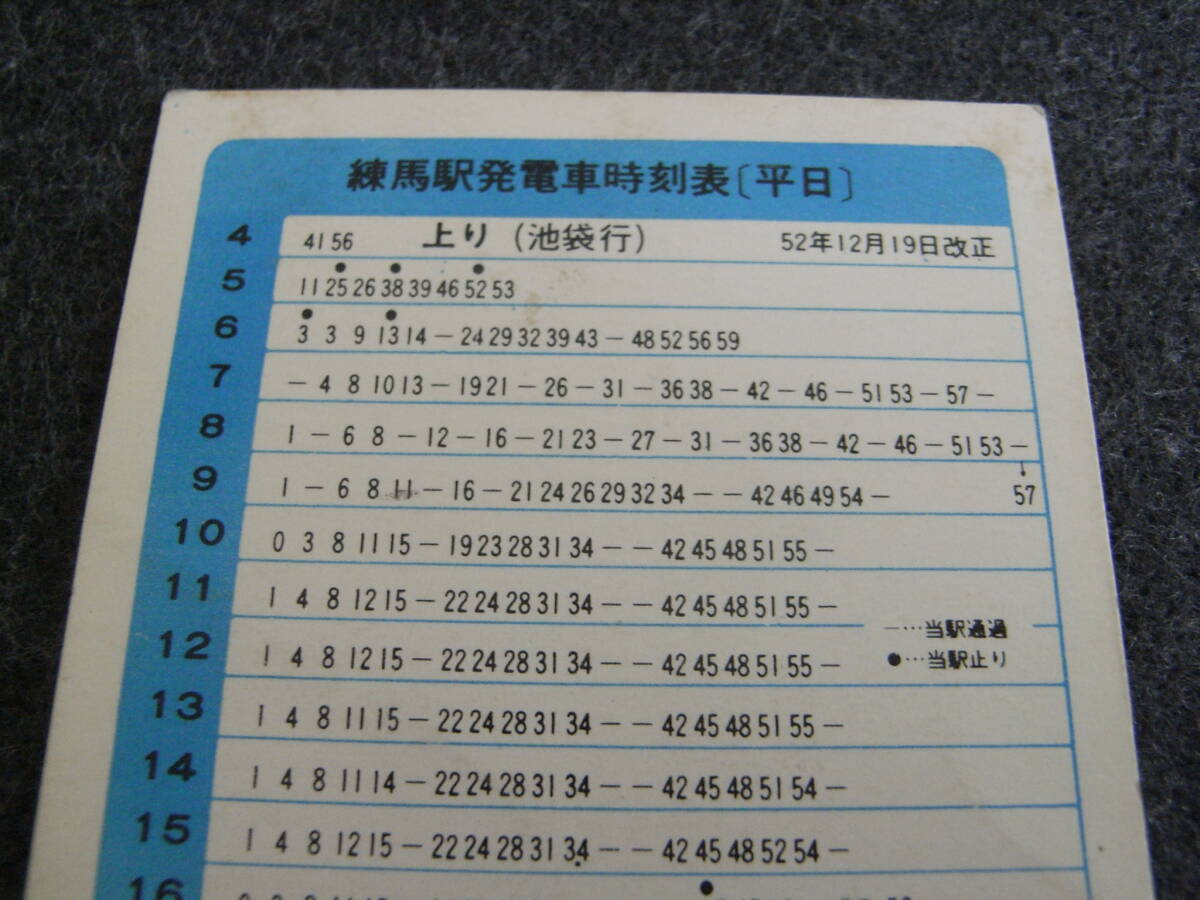 練馬駅発電車時刻表〔平日〕
4 41 56 上り(池袋行) 52年12月19日改正
● ● ●
5 11 25 26 38 39 46 52 53
● ●
6 3 3 9 13 14 － 24 29 32 39 43 － 48 52 56 59
7 － 4 8 10 13 － 19 21 － 26 － 31 － 36 38 － 42 － 46 － 51 53 － 57 －
8 1 － 6 8 － 12 － 16 － 21 23 － 27 － 31 － 36 38 － 42 － 46 － 51 53 －
↓
9 1 － 6 8 11 － 16 － 21 24 26 29 32 34 － － 42 46 49 54 － 57
10 0 3 8 11 15 － 19 23 28 31 34 － － 42 45 48 51 55 －
11 1 4 8 12 15 － 22 24 28 31 34 － － 42 45 48 51 55 －
－…当駅通過
12 1 4 8 12 15 － 22 24 28 31 34 － － 42 45 48 51 55 －
●…当駅止り
13 1 4 8 11 15 － 22 24 28 31 34 － － 42 45 48 51 55 －
14 1 4 8 11 14 － 22 24 28 31 34 － － 42 45 48 51 54 －
15 1 4 8 12 15 － 22 24 28 31 34 － － 42 45 48 52 54 －
●
16